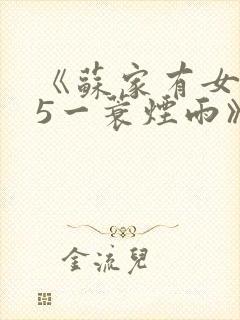 《蘇家有女
5一蓑煙雨》
金流兒